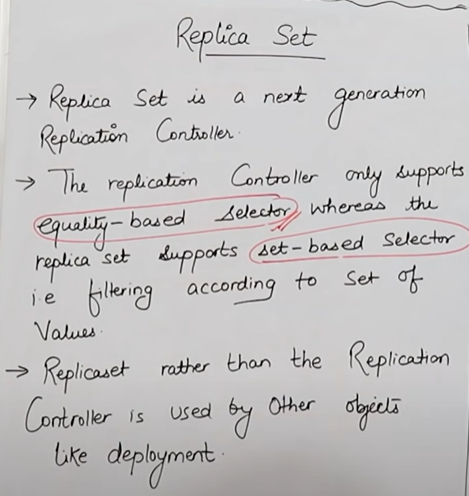 Replica Set
→ Replica Set is a next generation
Replication Controller.
→ The replication Controller only supports
equality-based selector, whereas the
replica set supports set-based selector
i.e filtering according to set of
Values.
→ Replicaset rather than the Replication
Controller is used by other objects
like deployment.